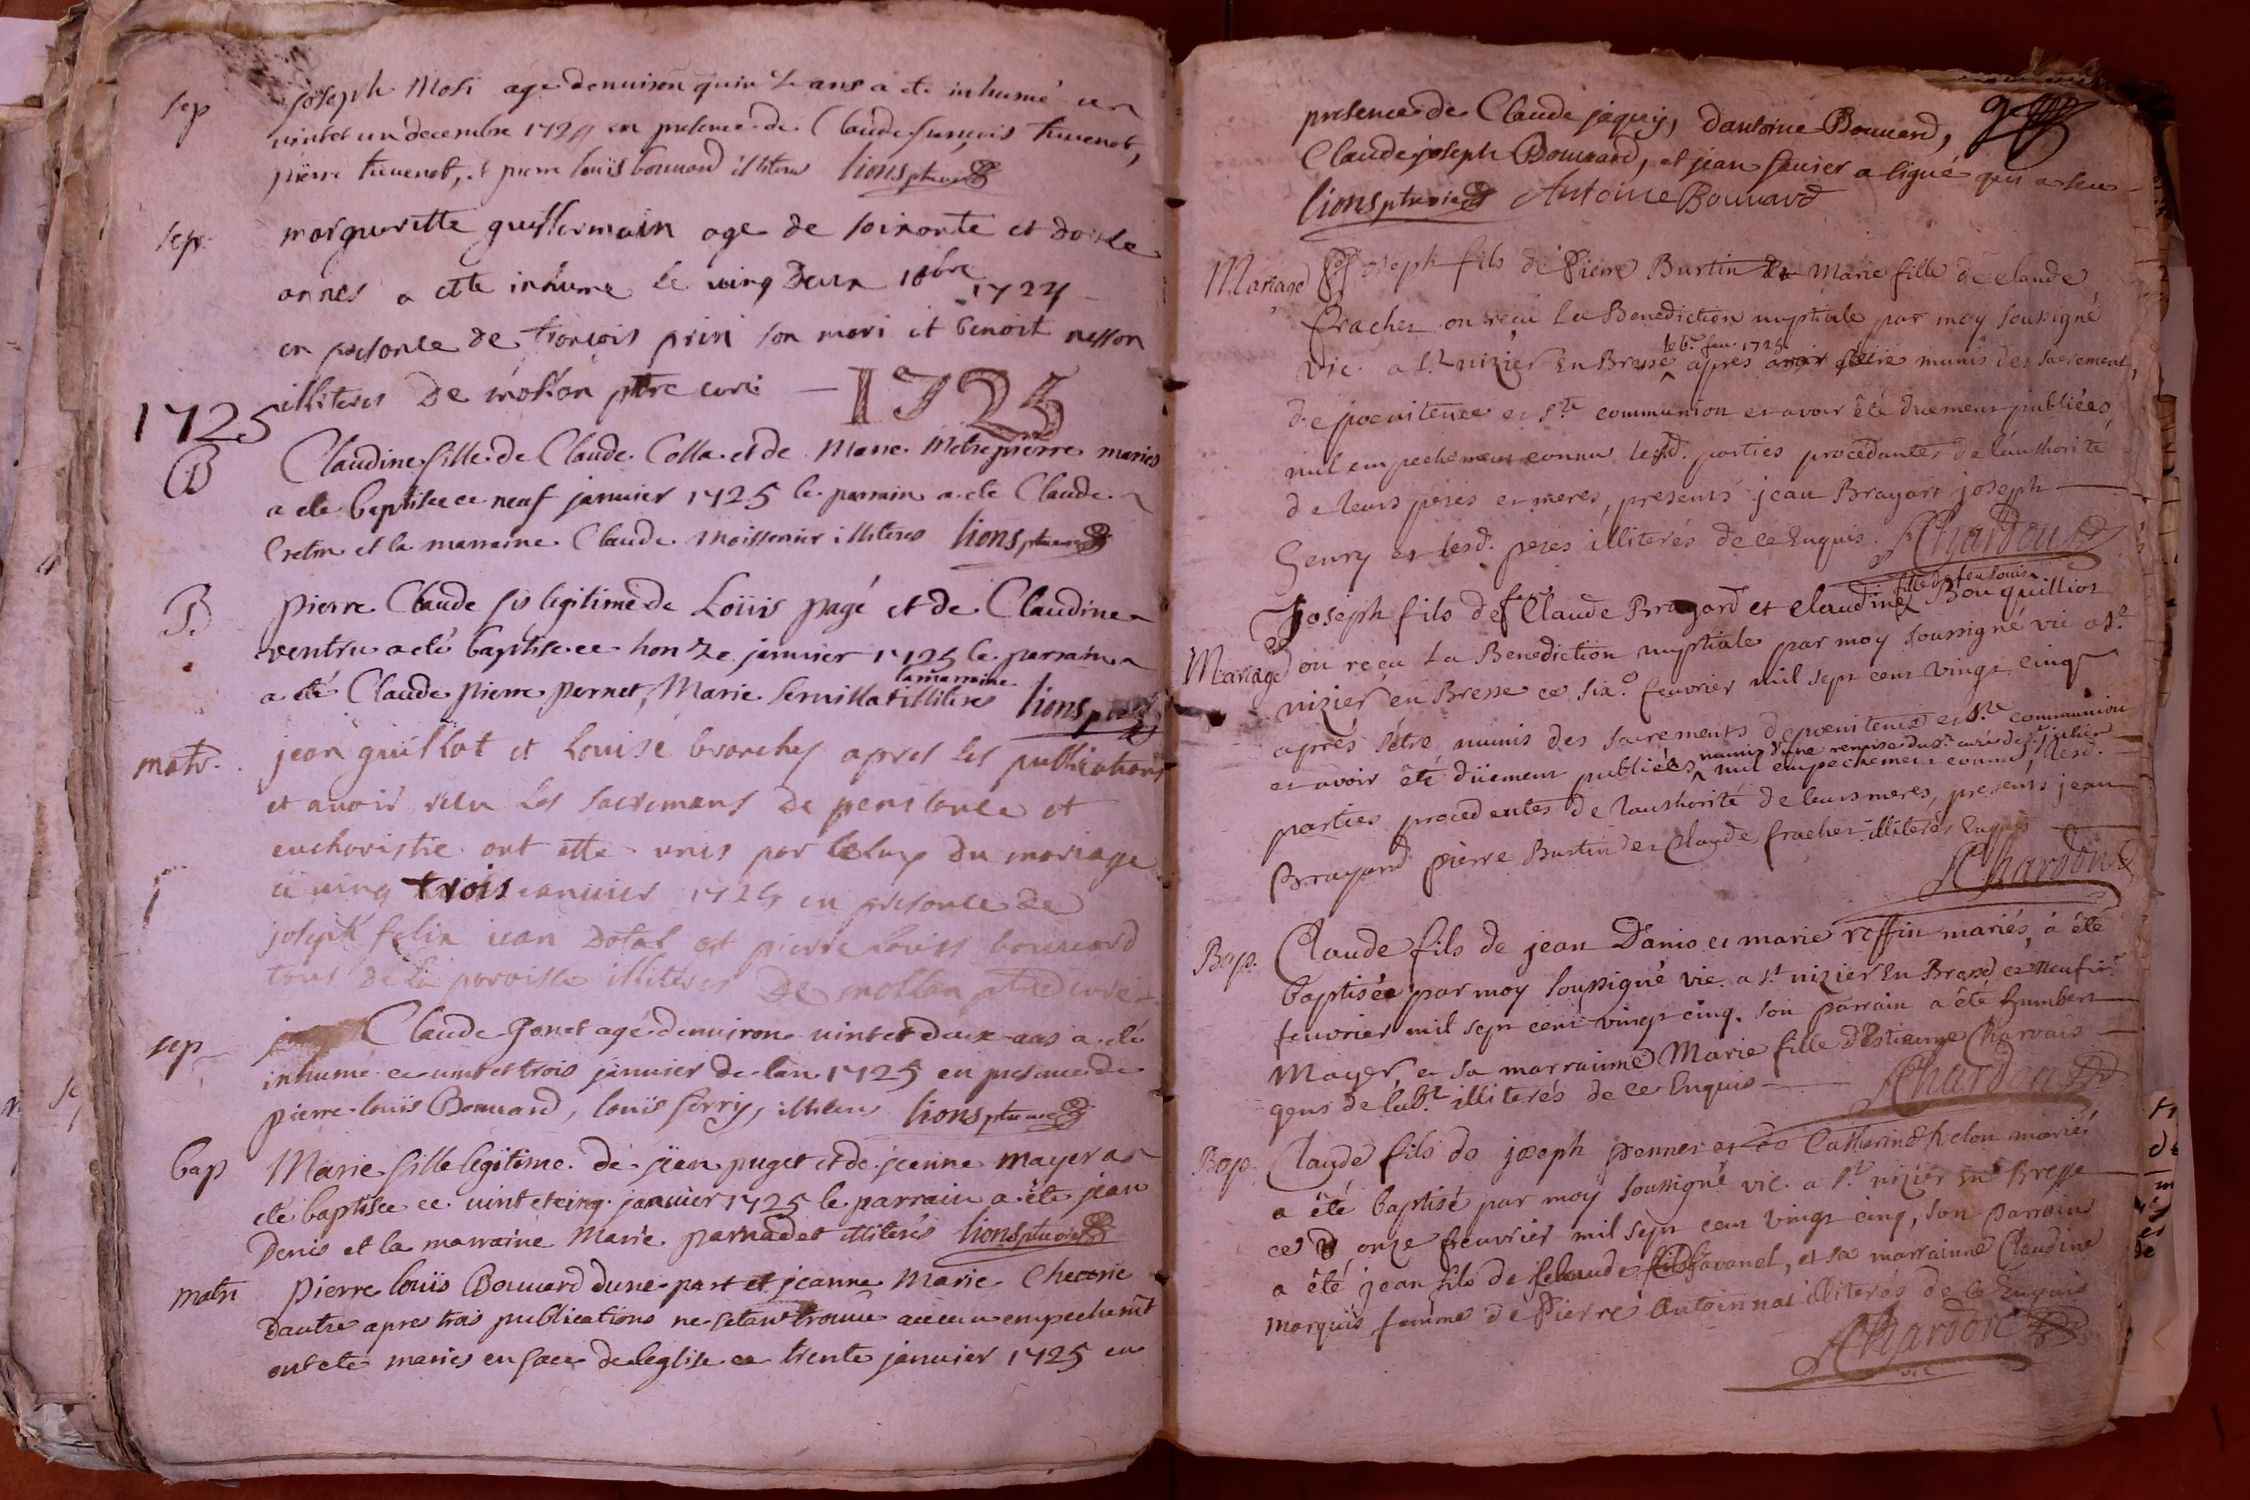 sep Joseph Mosi age denuiron quin Ze ans a ete inhumé ce
vintet un decembre 1724 en presence de Claude françois theuenot,
pierre theuenot, et pierre louis bouuard illiteres lions ptre vic
sepr. margueritte guillermain age de soixante et douse
annes a ette inhume le ving deux 10bre 1724
en presance de francois prin son mari et benoit nesson
illiteres De mollan ptre curé — 1725
1725
B Claudine fille de Claude Colla et de Marie Metrepierre mariés
a ete baptisee ce neuf januier 1725 le parrain a ete Claude
Cretin et la marraine Claude Moissonier illiteres lions ptre vic
B. pierre Claude fis legitime de Loüis pagé et de Claudine
ventru a eté baptise ce honZe januier 1725 le parrain
a eté Claude pierre pernet, la marraine Marie illiteres lions ptre
matr. jean guillot et Louise branchy apres les publications
et auoir receu les sacremans de penitance et
eucharistie ont ette unis par du mariage
ce ving trois januier 1725 en presance de
joseph felix jean Dotal et pierre Louis bouuard
tous de la paroisse illiteres De mollan ptre curé
sep Claude Gonet agé denuiron vintet deux ans a eté
inhumé ce vintet trois januier de lan 1725 en presence de
pierre louïs Bouuard, louïs ferry, illiteres lions ptre vic
bap Marie fille legitime de jean puget et de jeanne mayer a
eté baptisee ce vintetcinq januier 1725 le parrain a été jean
Denis et la marraine Marie parnadet illiterés lions ptre vic
matri pierre louïs Bouuard dune part et jeanne Marie Checorie
dautre apres trois publications ne setant trouué aucun empechemt
ont ete mariés en face de leglise ce trente januier 1725 en
presence de Claude jaquis, dantoine Bouuard,
Claude joseph Bouuard, et jean fauier a signé qui a sceu
lions ptre vic Antoine Bouuard
Mariage Joseph fils de Pierre Burtin et Marie fille de claude
fracher on reçu la Benediction nuptiale par moy soussigné
vic. a St. nizier en Bresse le 6e feu. 1725 apres s'être munis des sacrements
de poenitence et Ste communion et avoir êté duement publiées
nul empechement connu lesd. parties procedantes de l'authorité
de leurs peres et meres, presents jean Brayart joseph
Genry et lesd. peres illiterés de ce Enquis. Chardon
Mariage Joseph fils de feu Claude Brayard et claudine fille de feu louis Bouquillion
on reçu la Benediction nuptiale par moy soussigné vic a St.
nizier en Bresse ce six.e feuvrier mil sept cent vingt cinq
aprés s'être munis des sacrements de poenitence et Ste communion
et avoir êté düement publiées munis d'une remise du Sr. curé de St. julien nul empechement connu, lesd.
parties procedentes de l'authorité de leurs meres, presents jean
Brayard Pierre Burtin et Claude fracher illiterés Enquis
Chardon
Bap. Claude fils de jean Danio et marie roffin mariés, à êté
baptisée par moy soussigné vic. a St nizier En Bresse ce neuf
feuvrier mil sept cent vingt cinq. son parrain a êté humbert
Mayer et sa marrainne Marie fille d'Estienne Charvais
gens de lab.r illiterés de ce Enquis Chardon
Bap. Claude fils de joseph Pennet et de Catherine mariés
a êté baptisé par moy soussigné vic. a St. nizier En Bresse
ce onze feuvrier mil sept cent vingt cinq, son parrain
a êté jean fils de claude favanel, et sa marrainne Claudine
marquis femme de Pierre Antoinnat illiterés de ce Enquis
Chardon
vic